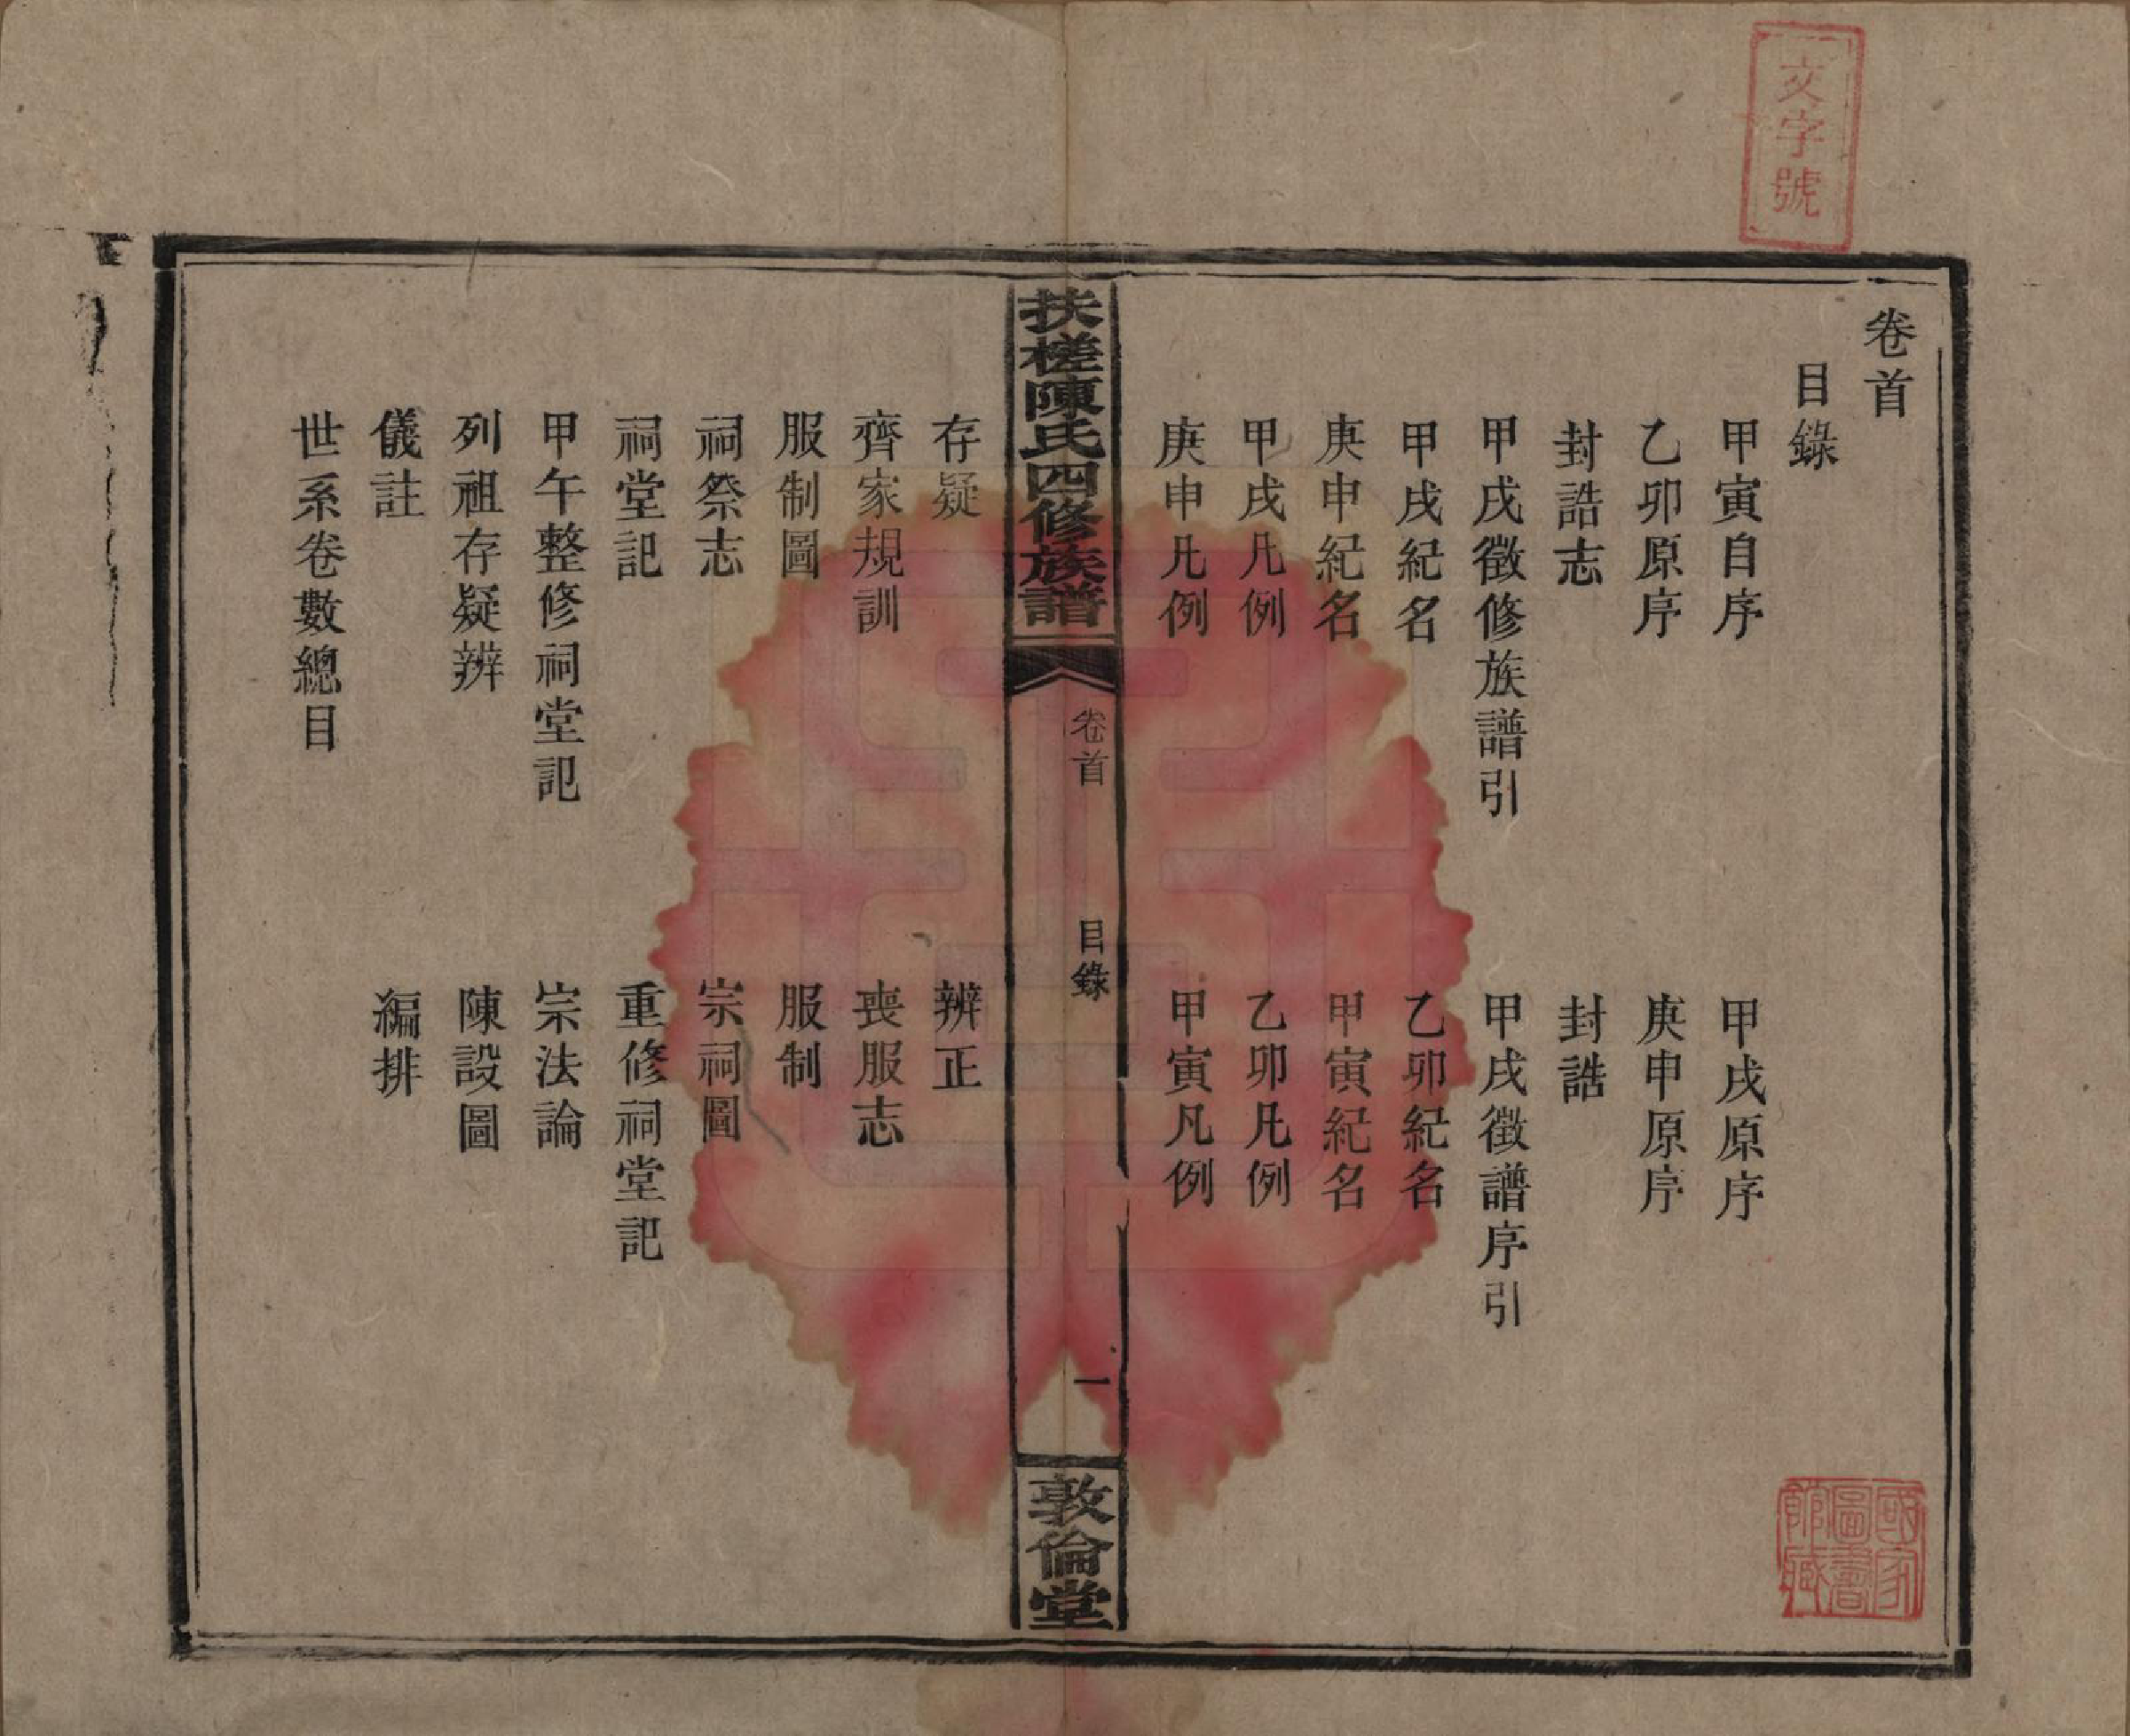 文字號
卷首
目錄
甲寅自序　甲戌原序
乙卯原序　庚申原序
封誥志　封誥
甲戌徵修族譜引　甲戌徵譜序引
甲戌紀名　乙卯紀名
庚申紀名　甲寅紀名
甲戌凡例　乙卯凡例
庚申凡例　甲寅凡例
扶槎陳氏四修族譜　卷首　目錄　一　敦倫堂
存疑　辨正
齊家規訓　喪服志
服制圖　服制
祠祭志　宗祠圖
祠堂記　重修祠堂記
甲午整修祠堂記　宗法論
列祖存疑辨　陳設圖
儀註　編排
世系卷數總目
國家圖書館藏